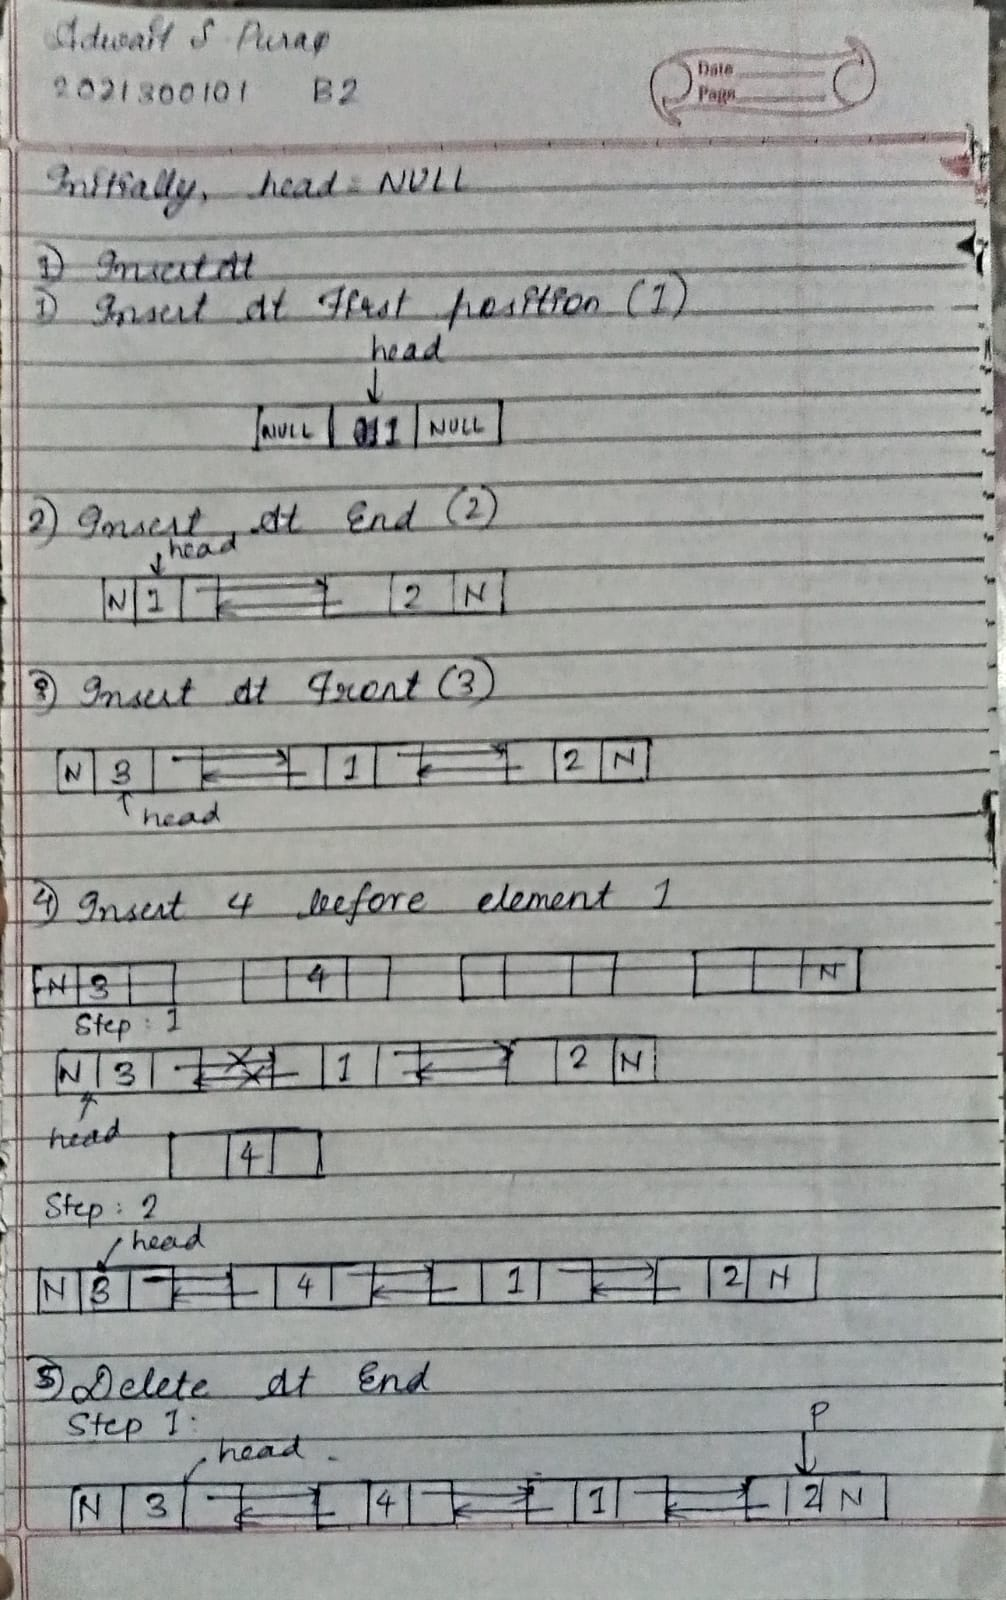 Adwait S Purao
2021300101 B2
Date
Page
Initially, head = NULL
1) Insert At
1) Insert At First position (1)
head
NULL 1 NULL
2) Insert At End (2)
head
N 1 2 N
3) Insert At Front (3)
N 3 1 2 N
head
4) Insert 4 before element 1
N 3 4 N
Step : 1
N 3 1 2 N
head
4
Step : 2
head
N 3 4 1 2 N
5) Delete At End
Step 1:
P
head
N 3 4 1 2 N